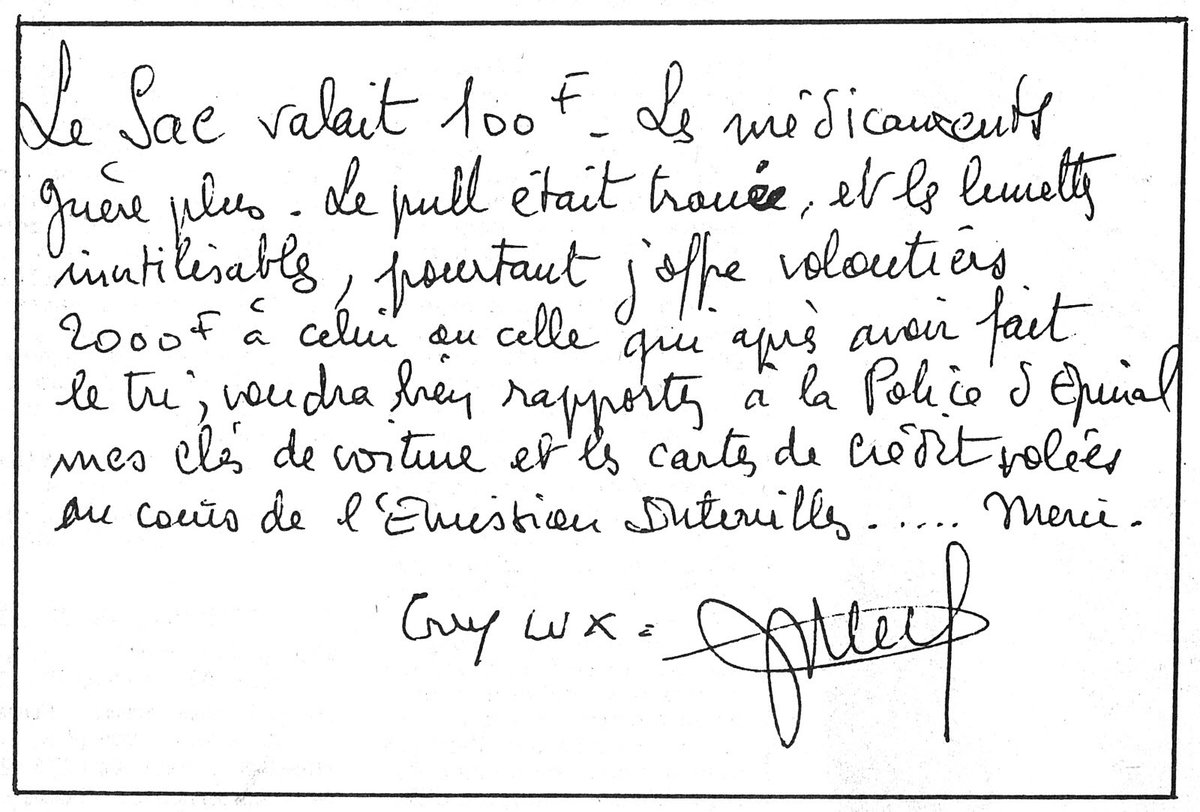 Le Sac valait 100F - Les médicaments
guère plus. Le pull était trouée, et les lunettes
inutilisables, pourtant j'offre volontiers
2000F à celui ou celle qui après avoir fait
le tri, voudra bien rapporter à la Police d'Epinal
mes clés de voiture et les cartes de crédit volées
au cours de l'Emission Intervilles ..... Merci.
Guy LUX =